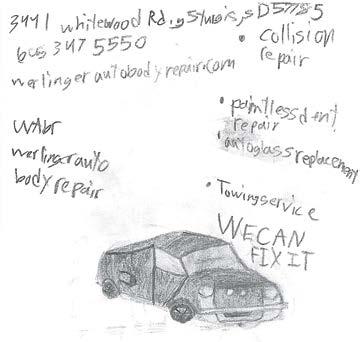 3441 whitewood Rd, Sturgis, SD 57785
605 347 5550
werlingerautobodyrepair.com
• collision
repair
• paintless dent
repair
• autoglass replacement
WABr
werlinger auto
body repair
• Towing service
WE CAN
FIX IT